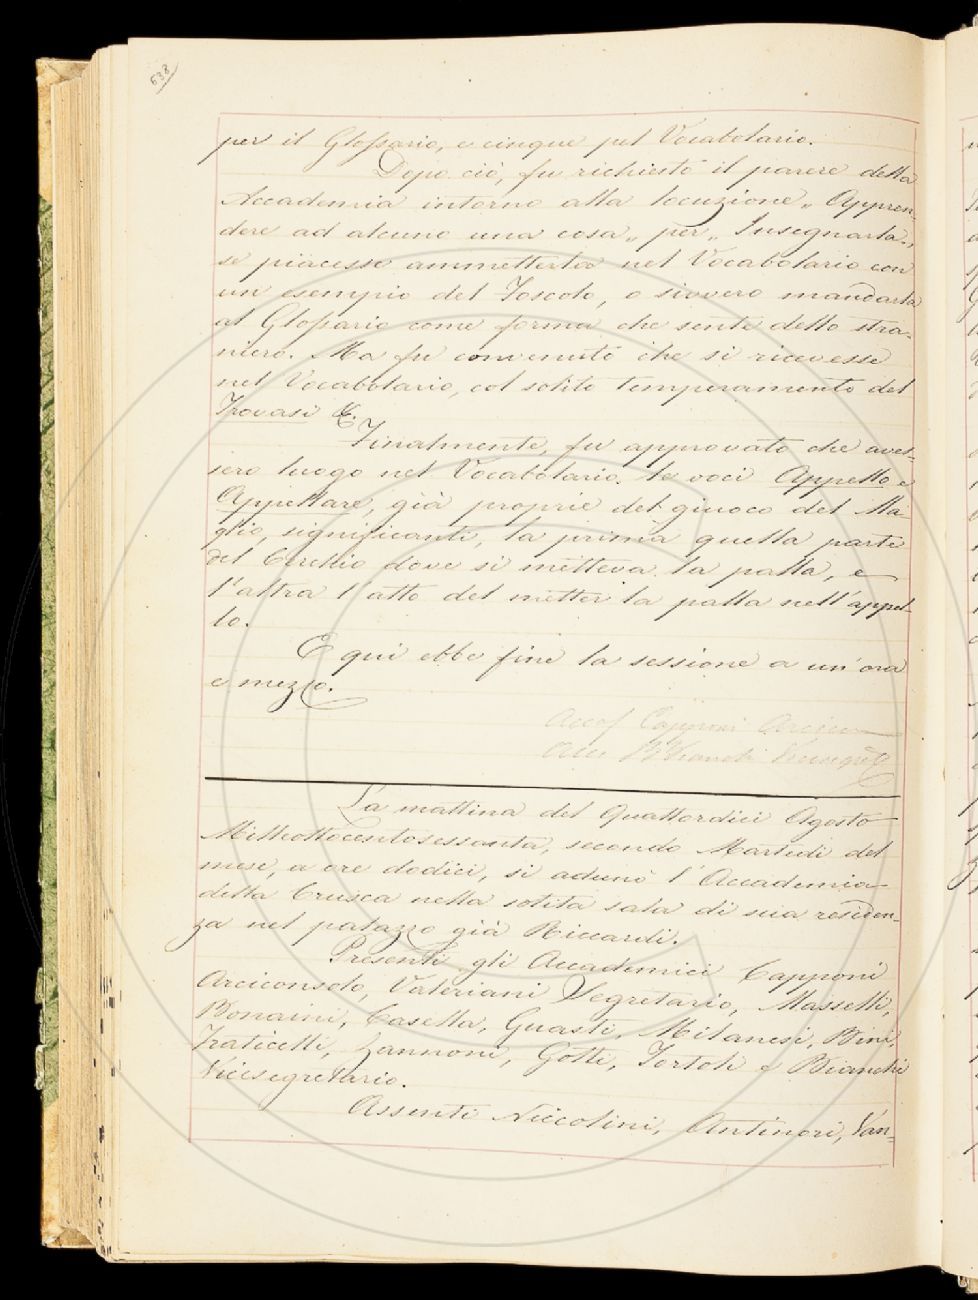 638
per il Glossario, e cinque pel Vocabolario.
Dopo ciò, fu richiesto il parere della
Accademia intorno alla locuzione „ Appren-
dere ad alcuno una cosa„ per „ Insegnarla„
se piacesse ammetterla nel Vocabolario con
un esempio del Foscolo, o sivvero mandarla
al Glossario come forma che sente dello stra-
niero. Ma fu convenuto che si ricevesse
nel Vocabolario, col solito temperamento del
Trovasi &.
Finalmente, fu approvato che aves-
sero luogo nel Vocabolario le voci Appello e
Appellare, già proprie del giuoco del Ma-
glio, significanti, la prima quella parte
del Cerchio dove si metteva la palla, e
l'altra l'atto del metter la palla nell'appel-
lo.
E qui ebbe fine la sessione a un'ora
e mezzo.
Capponi
La mattina del Quattordici Agosto
Milleottocentosessanta, secondo Martedì del
mese, a ore dodici, si adunò l'Accademia
della Crusca nella solita sala di sua residen-
za nel palazzo già Riccardi.
Presenti gli Accademici Capponi
Arciconsolo, Valeriani Segretario, Masselli,
Bonaini, Casella, Guasti, Milanesi, Bini,
Fraticelli, Zannoni, Gotti, Tortoli e Bianchi
Vicesegretario.
Assenti Niccolini, Antinori, Van-